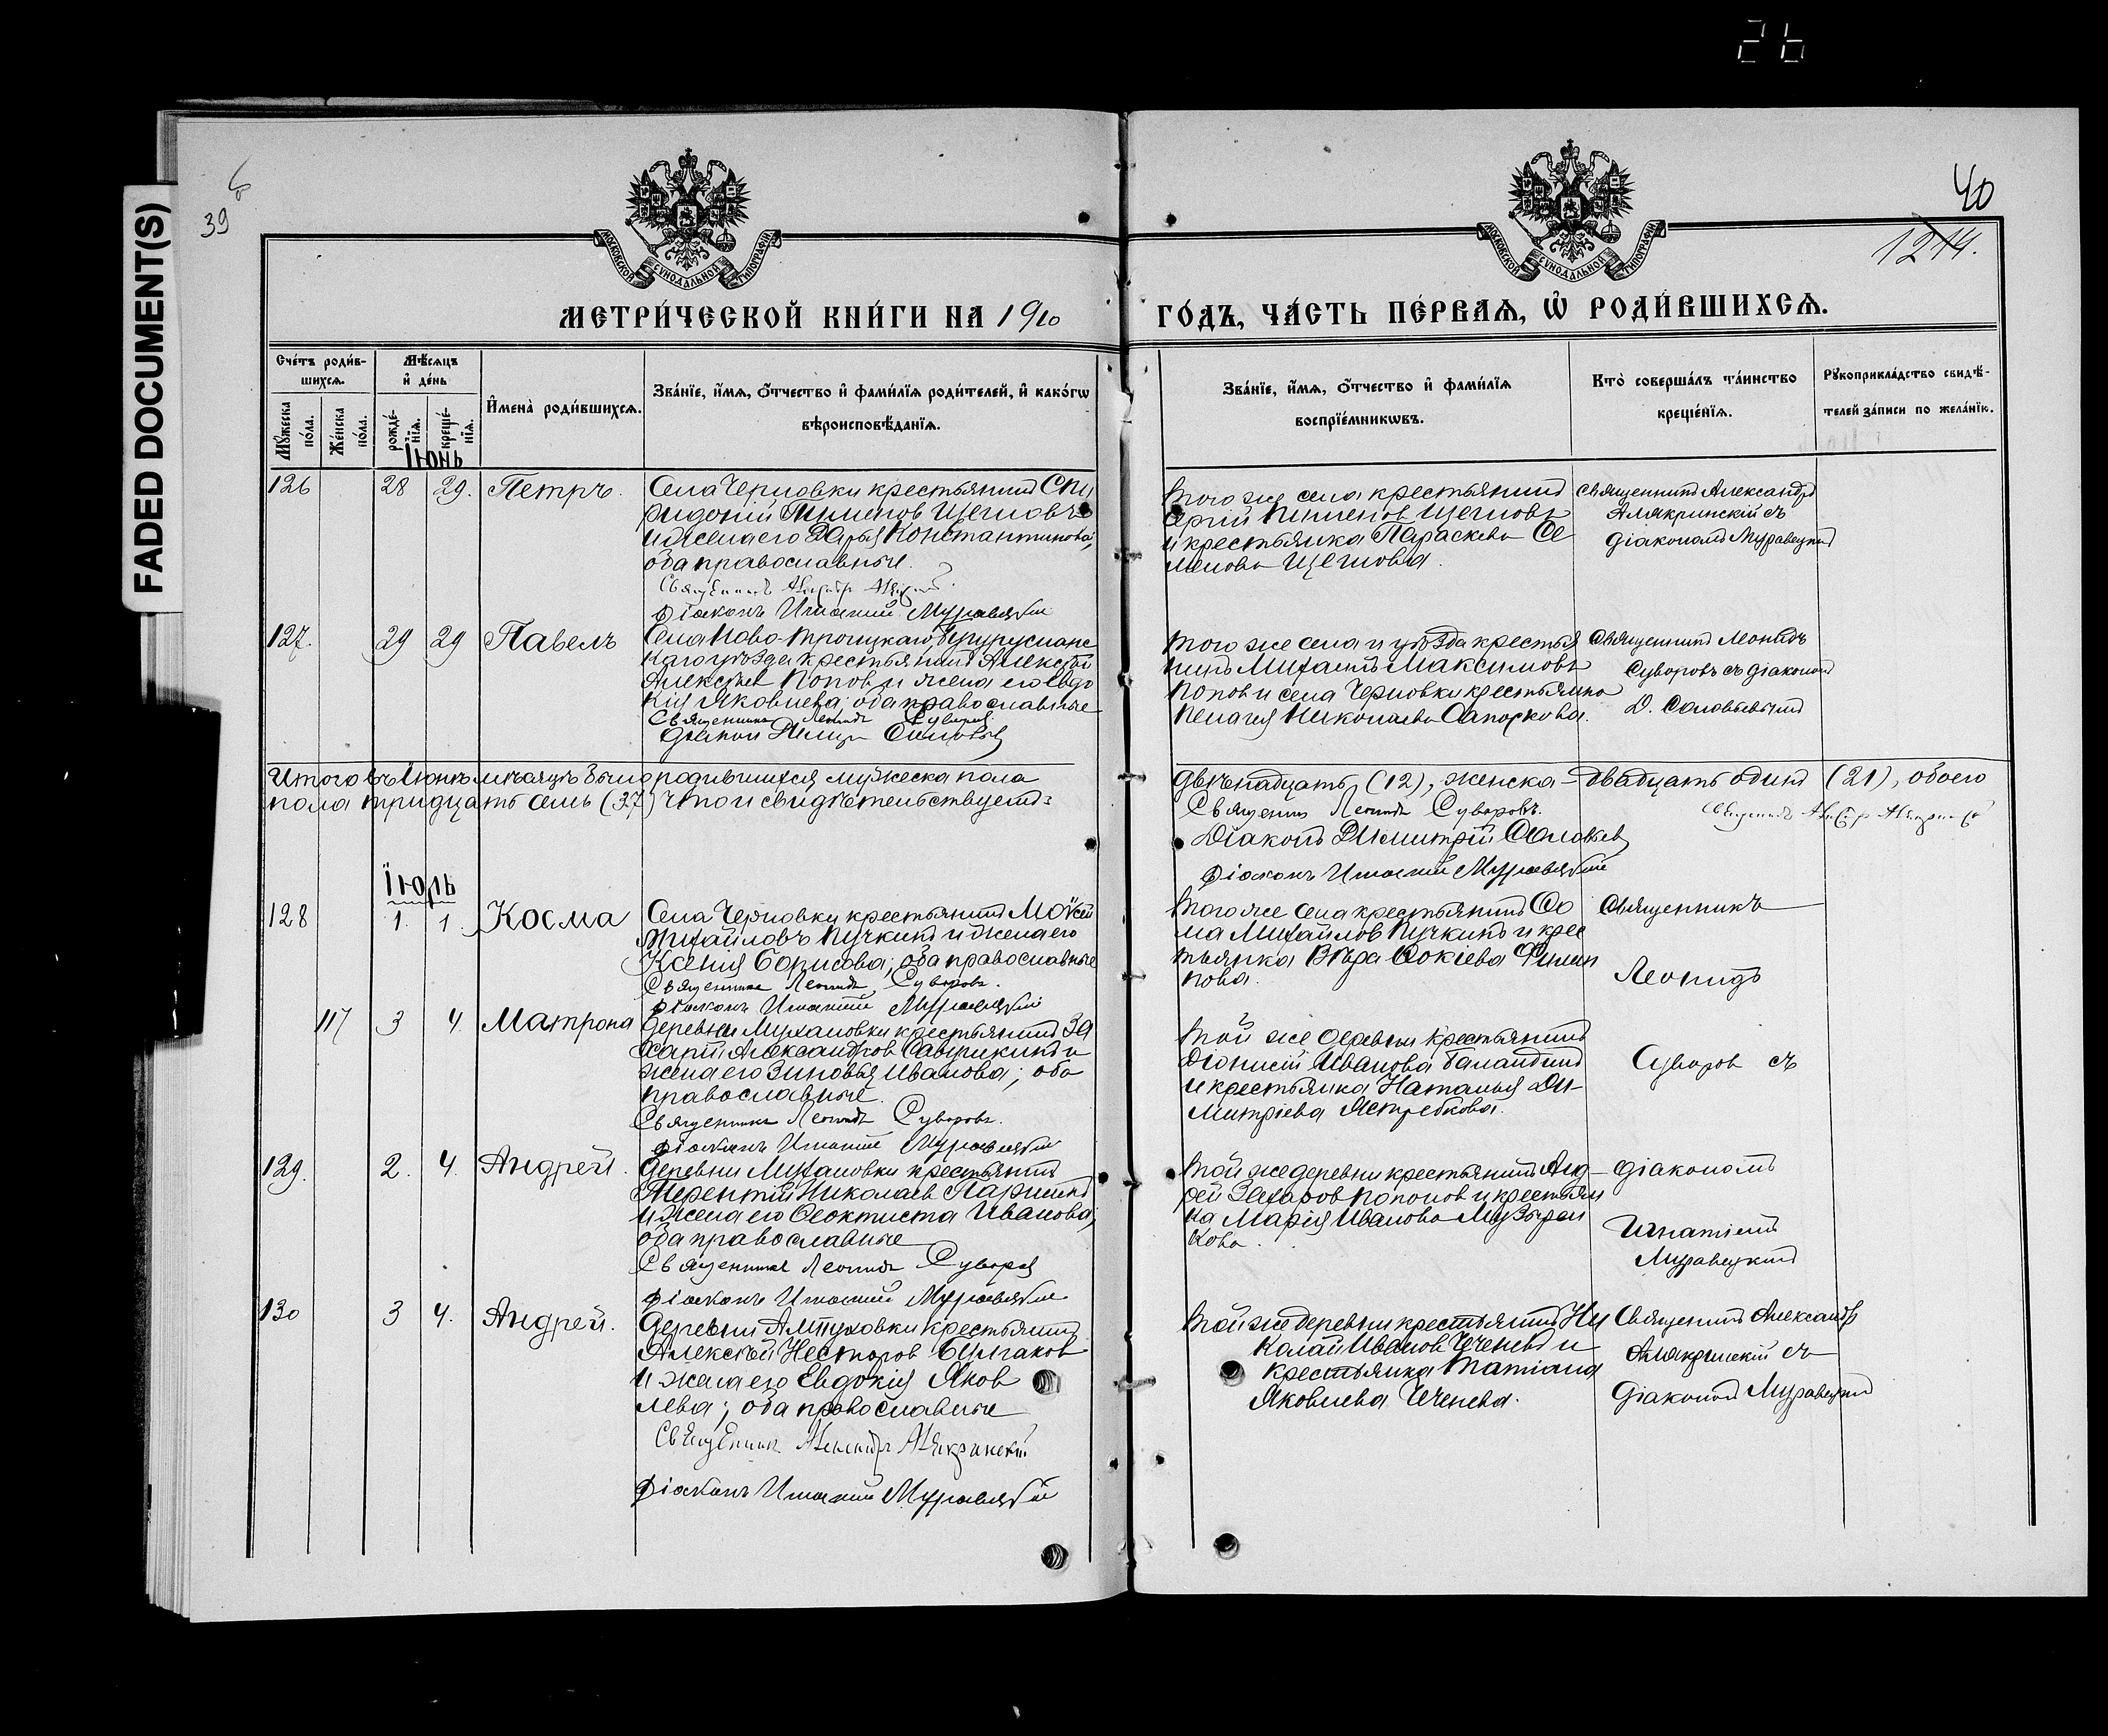 26
FADED DOCUMENT(S)
39
40
1214.
МОСКОВСКОЙ СѴНОДАЛЬНОЙ ТИПОГРАФІИ
МОСКОВСКОЙ СѴНОДАЛЬНОЙ ТИПОГРАФІИ
МЕТРИ́ЧЕСКОЙ КНИ́ГИ НА 1910
ГО́ДЪ, ЧА́СТЬ ПЕ́РВАѦ, Ѡ҆ РОДИ́ВШИХСѦ.
Сче́тъ роди́в-
шихсѧ.
Мꙋ́жеска по́ла.
Же́нска по́ла.
Мѣ́сѧцъ
и҆ де́нь
рожде́-нїѧ.
креще́-нїѧ.
И҆мена̀ роди́вшихсѧ.
Зва́нїе, и҆́мѧ, ѻ҆́тчество и҆ фами́лїѧ роди́телей, и҆ како́гѡ
вѣроисповѣ́данїѧ.
Зва́нїе, и҆́мѧ, ѻ҆́тчество и҆ фами́лїѧ
воспрїе́мникѡвъ.
Кто̀ соверша́лъ та́инство
креще́нїѧ.
Рꙋкоприкла́дство свидѣ́-
телей за́писи по жела́нїю.
Іюнь
126 28 29. Петръ.
Села Черновки крестьянинъ Спи
ридонiй Пименов Щегловъ
и жена его Дарья Константинова,
оба православные.
Священникъ
Діаконъ Игнатий Муравецкий
того же села крестьянинъ
Пименов Щегловъ
и крестьянка Параскева Се
менова Щеглова.
Священникъ Александръ
Алякринскій съ
діакономъ Муравецкимъ
127. 29 29 Павелъ
Села Ново-Троицкаго, Бугурусланс
каго уѣзда крестьянинъ Алексѣй
Алексѣев Попов и жена его Евдо
кия Яковлева; оба православные
Священникъ Леонидъ Суворов
Диакон Соловьев
того же села и уѣзда крестья
нинъ Михаилъ Максимовъ
Попов и села Черновки крестьянка
Пелагея Николаева Сапожкова.
Священникъ Леонидъ
Суворовъ съ діакономъ
Д. Соловьевымъ
Итого въ Іюнѣ мѣсяцѣ было родившихся мужеска пола
двѣнадцать (12), женска - двадцать одинъ (21), обоего
пола тридцать семь (37) что и свидѣтельствуемъ:
Священник Леонидъ Суворовъ.
Діаконъ Димитрій Соловьев
Діаконъ Игнатий Муравецкий
Іюль
128 1. 1. Косма
Села Черновки крестьянинъ Моѵсей
Михайловъ Пучкинъ и жена его
Ксения Борисова; оба православные
Священникъ Леонидъ Суворовъ.
Діаконъ Игнатий Муравецкий
того же села крестьянинъ Ѳо
ма Михайлов Пучкинъ и крес
тьянка Вѣра Ѳокіева Филип
пова.
Священникъ
Леонидъ
117 3 4. Матрона
Деревни Мухановки крестьянинъ За
харій Александров Саврикинъ и
жена его Зиновья Иванова; оба
православные.
Священникъ Леонидъ Суворовъ.
Діаконъ Игнатий Муравецкий
той же деревни крестьянинъ
Діонисій Иванова Баландинъ
и крестьянка Наталья Ди-
митріева Ястребкова.
Суворов съ
129. 2. 4. Андрей.
Деревни Мухановки крестьянинъ
Терентій Николаев Паршинъ
и жена его Ѳеоктиста Иванова;
оба православные
Священникъ Леонидъ Суворов
Діаконъ Игнатий Муравецкий
той же деревни крестьянинъ Анд-
рей Захаров Попонов и крестьян
ка Марія Иванова
кова.
діакономъ
Игнатіемъ
Муравецкимъ
130 3 4. Андрей.
Деревни Алтуховки крестьянинъ
Алексѣй Несторов Булгаков
и жена его Евдокія Яков
лева; оба православные
Священникъ Александръ Алякринскій
Діаконъ Игнатий Муравецкий
той же деревни крестьянинъ Ни
колай Иванов Чененъ и
крестьянка Татіана
Яковлева Ченева.
Священникъ Александръ
Алякринскій съ
діакономъ Муравецкимъ